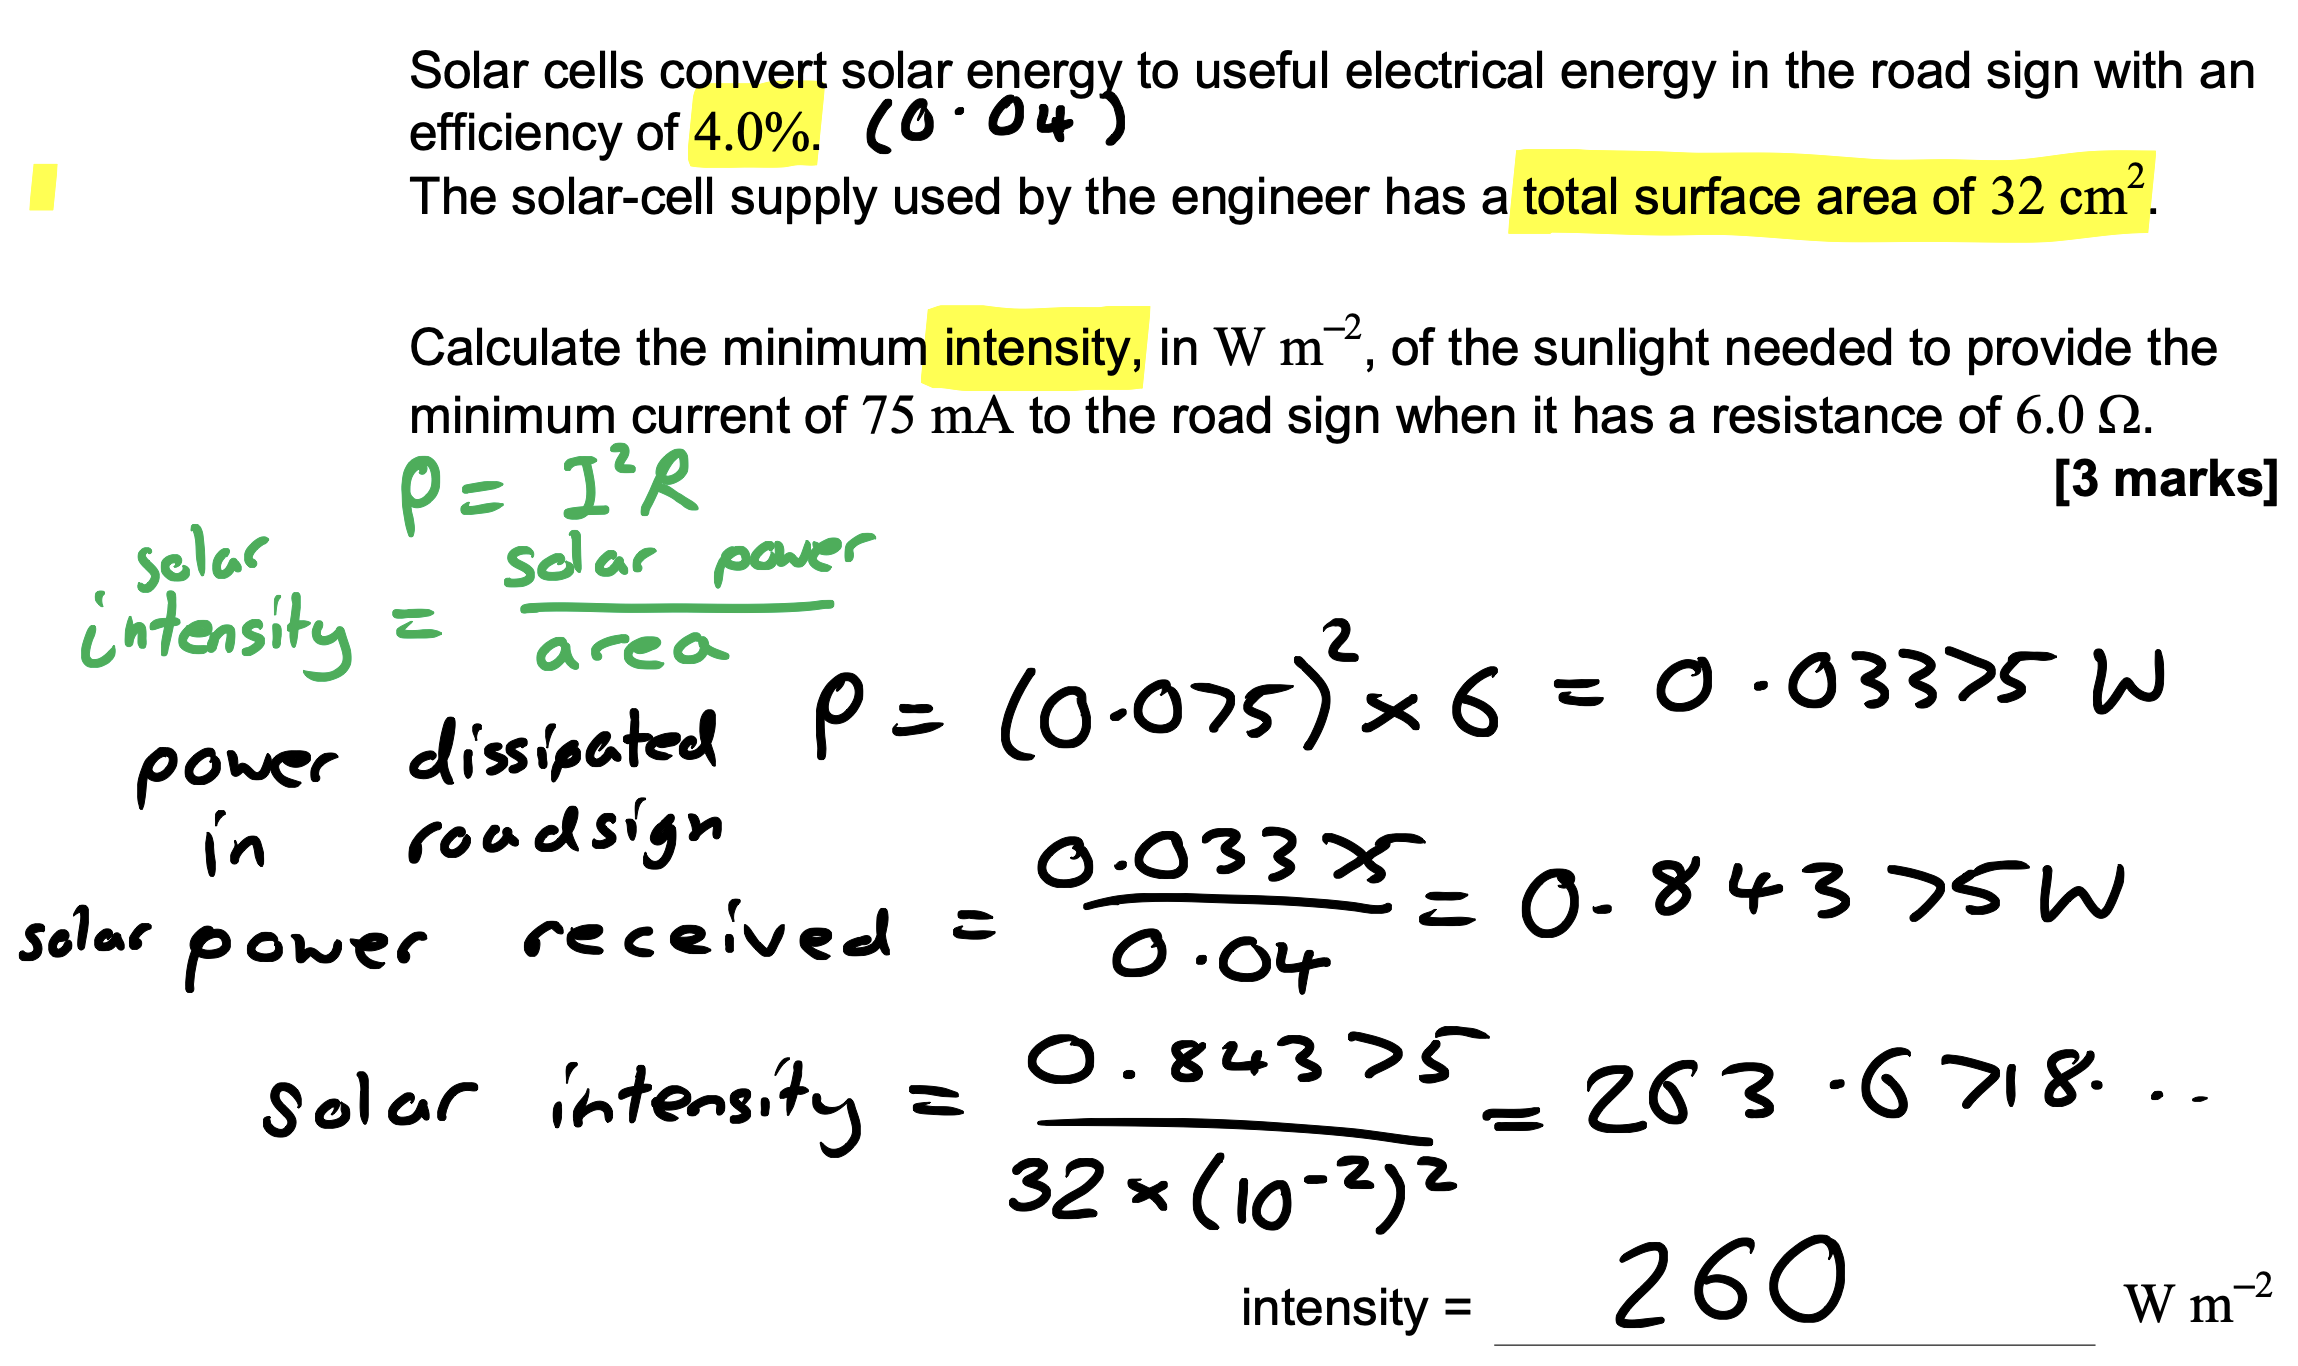 Solar cells convert solar energy to useful electrical energy in the road sign with an
efficiency of 4.0%. (0.04)
The solar-cell supply used by the engineer has a total surface area of 32 cm².
Calculate the minimum intensity, in W m⁻², of the sunlight needed to provide the
minimum current of 75 mA to the road sign when it has a resistance of 6.0 Ω.
[3 marks]
P = I²R
solar intensity = solar power / area
power dissipated in roadsign P = (0.075)² × 6 = 0.03375 W
solar power received = 0.03375 / 0.04 = 0.84375 W
solar intensity = 0.84375 / 32 × (10⁻²)² = 263.6718...
intensity = 260 W m⁻²